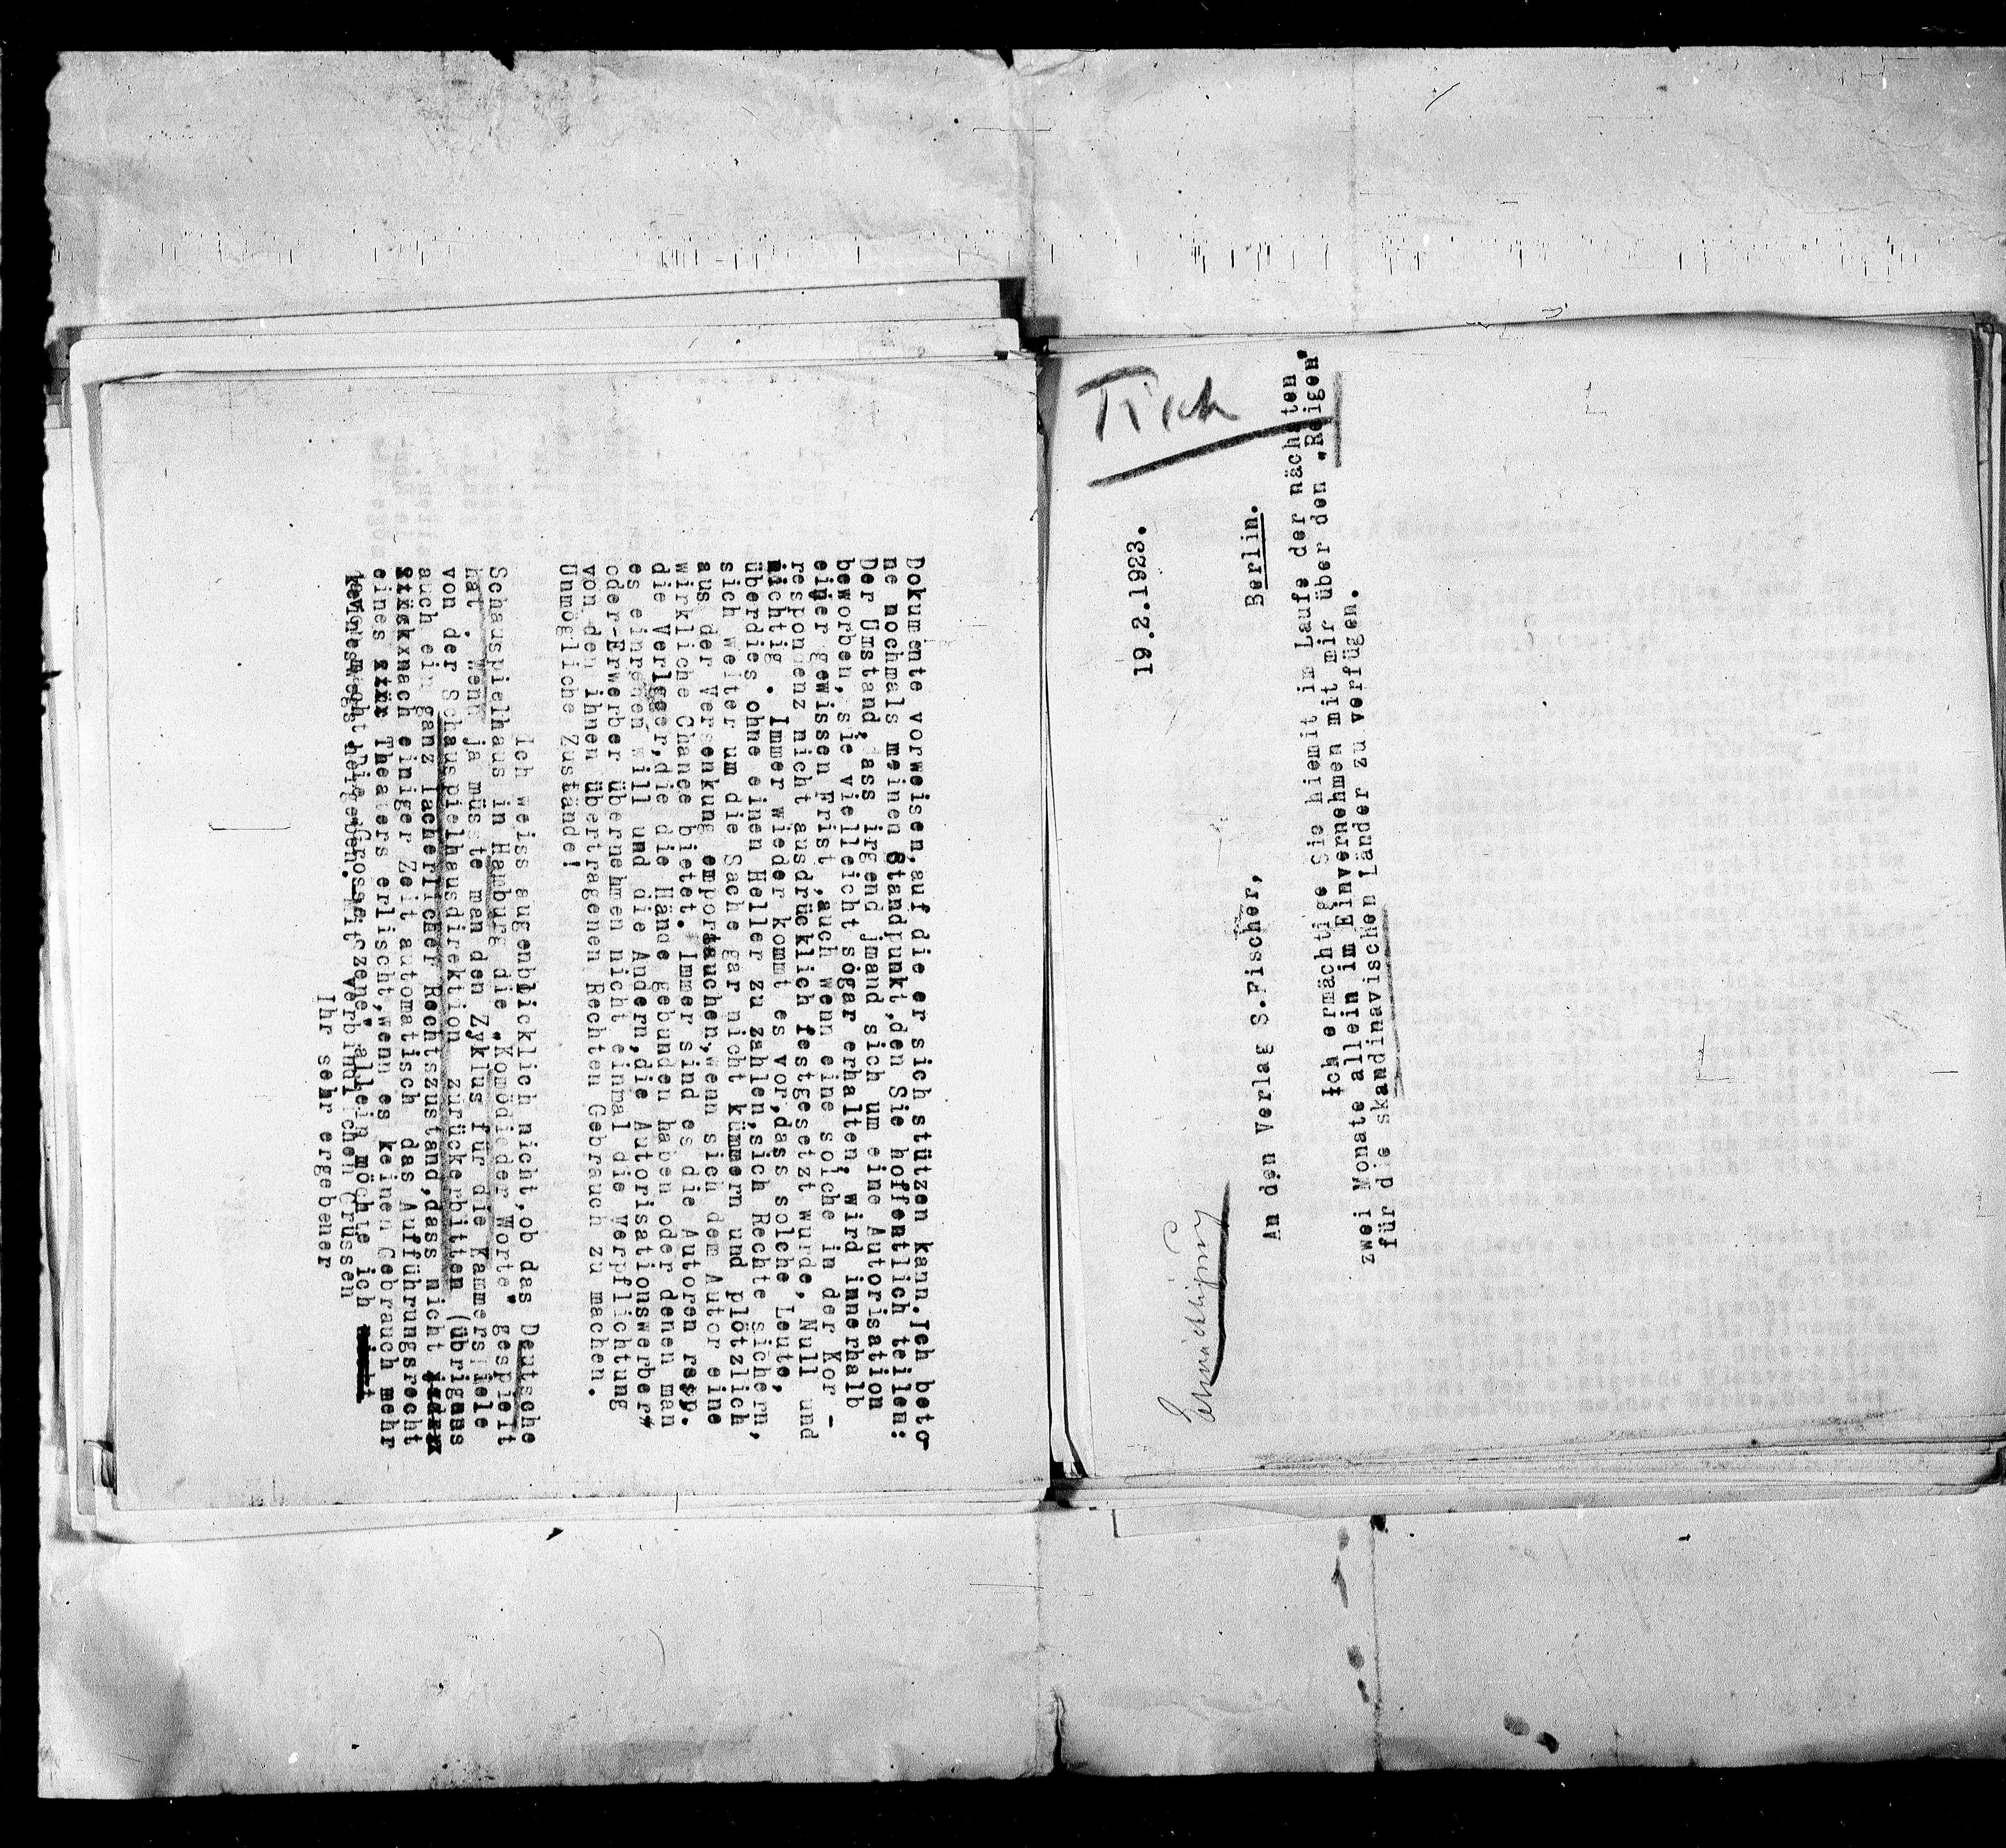 Dokumente vorweisen,auf die er sich stützen kann.Ich beto-
ne nochmals meinen Standpunkt,den Sie hoffentlich teilen:
Der Umstand,dass irgend jmand sich um eine Autorisation
beworben,sie vielleicht sogar erhalten, wird innerhalb
einer gewissen Frist,auch wenn eine solche in der Kor -
respondenz nicht ausdrücklich festgesetzt wurde, Null und
nichtig . Immer wieder kommt es vor,dass solche Leute,
überdies ohne einen Heller zu zahlen,sich Rechte sichern,
sich weiter um die Sache gar nicht kümmern und plötzlich
aus der Versenkung emportauchen,wenn sich dem Autor eine
wirkliche Chance bietet. Immer sind es die Autoren resp.
die Verleger,die die Hände gebunden haben oder denen man
es einreden will und die Andern,die Autorisationswerber
oder-Erwerber übernehmen nicht einmal die Verpflichtung
von den ihnen übertragenen Rechten Gebrauch zu machen.
Unmögliche Zustände!
Ich weiss augenblicklich nicht,ob das Deutsche
Schauspielhaus in Hamburg die „Komödie der Worte" gespielt
hat . Wenn ja müsste man den Zyklus für die Kammerspiele
von der Schauspielhausdirektion zurückerbitten (übrigens
auch ein ganz lächerlicher Rechtszustand,dass nicht
nach einiger Zeit automatisch das Aufführungsrecht
eines Theaters erlischt,wenn es keinen Gebrauch mehr
davon macht. Die „Grosse Szene" allein möchte ich
keineswegs hergeben. Mit verbindlichen Grüssen
Ihr sehr ergebener
Fisch
19.2.1923.
An den Verlag S.Fischer,
Berlin.
Ich ermächtige Sie hiemit im Laufe der nächsten
zwei Monate allein im Einvernehmen mit mir über den „Reigen"
für die skandinavischen Länder zu verfügen.
Ermächtigung